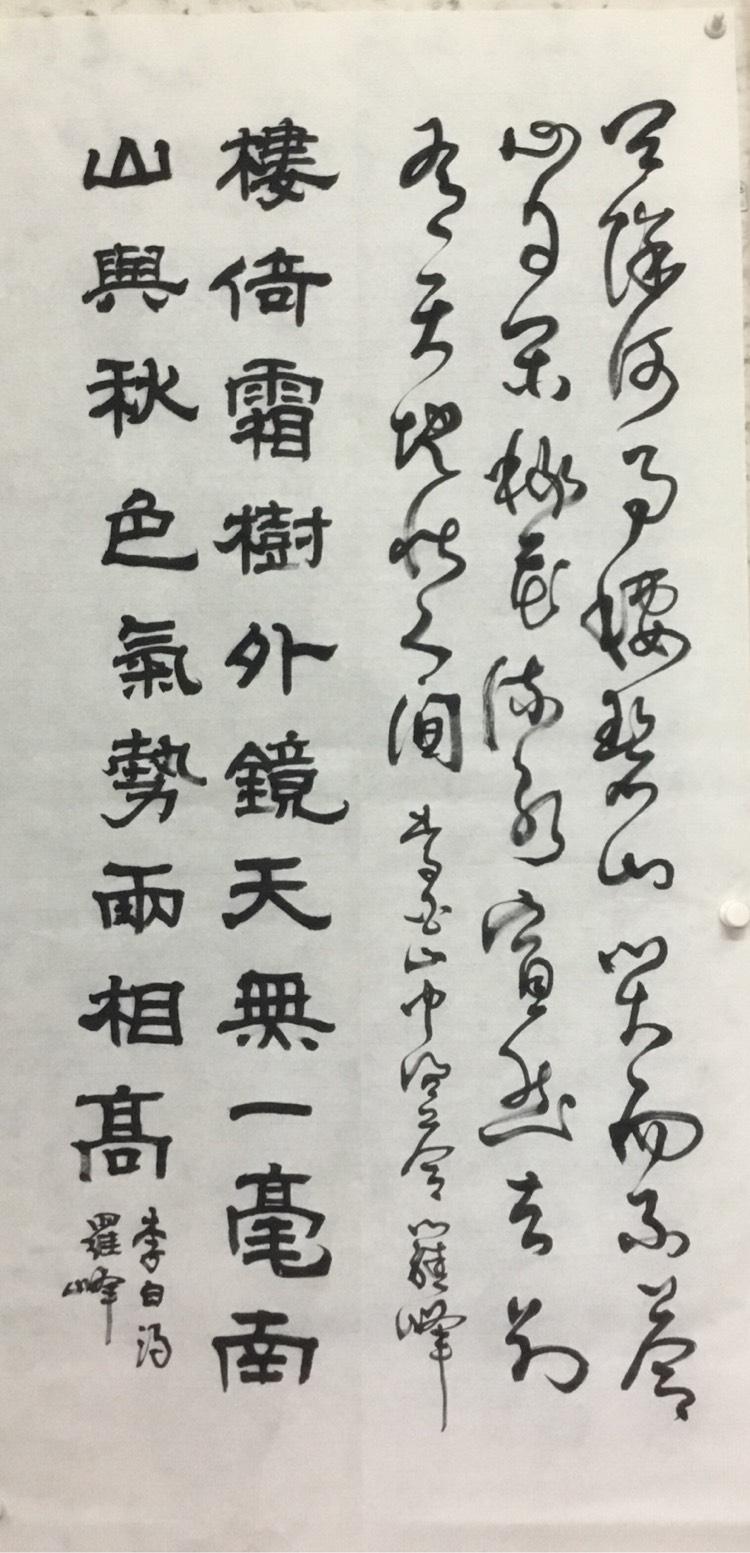 問余何事棲碧山笑而不答
心自閑桃花流水窅然去別
有天地非人間 李白山中問答 羅峰
樓倚霜樹外鏡天無一毫南
山與秋色氣勢兩相髙
李白詩
羅峰